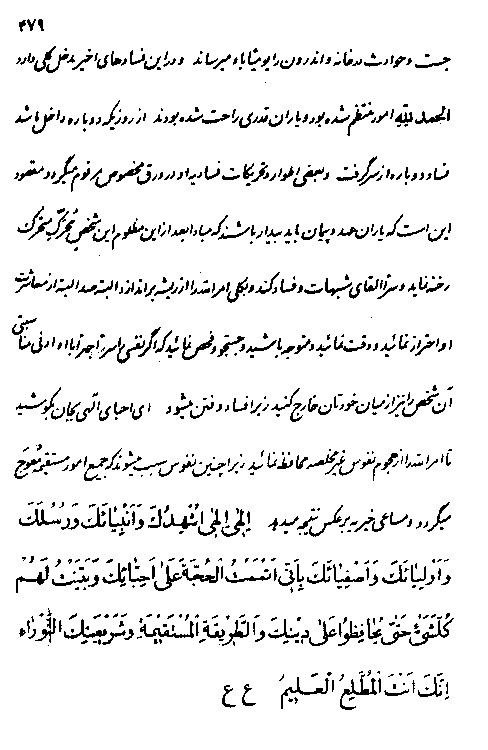 ۴۷۹
جست و حوادث در خانه و اندرون را بومیثاباء میرساند و در این فسادهای اخیر مدخل کلی دارد
الحمد لله امور منتظم شده بود و یاران قدری راحت شده بودند از روزیکه دوباره داخل باشد
فساد دوباره از سر گرفت و بعضی اطوار و تحریکات فسادیه او در ورق مخصوص مرقوم میگردد مقصود
این است که یاران عهد و پیمان باید بیدار باشند که مبادا بعد از این مظلوم این شخص محرک متحرک
رخنه نماید و سراً القای شبهات و فساد کند و بکلی امرالله را از ریشه براندازد البته صد البته از معاشرت
او احتراز نمائید و دقت نمائید و متوجه باشید و جستجو و فحص نمائید که اگر نفسی را سراً جهراً با او ادنی مناسبتی
آن شخص را نیز از میان خودتان خارج کنید زیرا فساد و فتن میشود ای احبای الهی بجان بکوشید
تا امرالله را از هجوم نفوس غیر مخلصه محافظه نمائید زیرا چنین نفوس سبب میشوند که جمیع امور مستقیمه معوج
میگردد و مساعی خیریه بر عکس نتیجه میدهد اِلهی اِلهی اُشْهِدُكَ وَ اَنْبِیائَكَ وَ رُسُلَكَ
وَ اَوْلِیائَكَ وَ اَصْفِیائَكَ بِاَنّی اَتْمَمْتُ الْحُجَّةَ عَلٰی اَحِبّائِكَ وَ بَیَّنْتُ لَهُمْ
كُلَّشَیْءٍ حَتّٰی یُحافِظُوا عَلٰی دینِكَ وَ الطَّریقَةِ الْمُسْتَقیمَةِ وَ شَریعَتِكَ النَّوْراءِ
اِنَّكَ اَنْتَ الْمُطَّلِعُ الْعَلیمُ ع ع